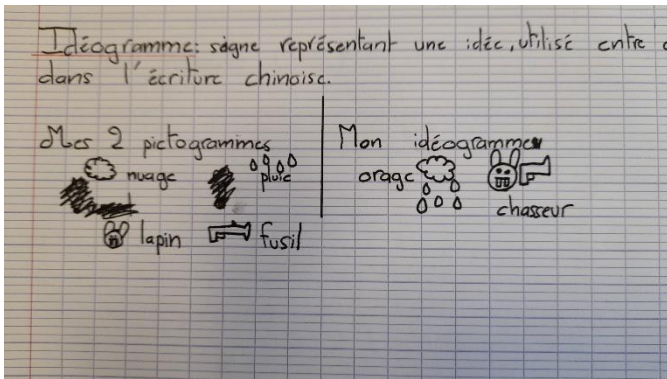 Idéogramme: signe représentant une idée, utilisé entre
dans l'écriture chinoise.
Mes 2 pictogrammes
nuage
pluie
lapin
fusil
Mon idéogramme
orage
chasseur